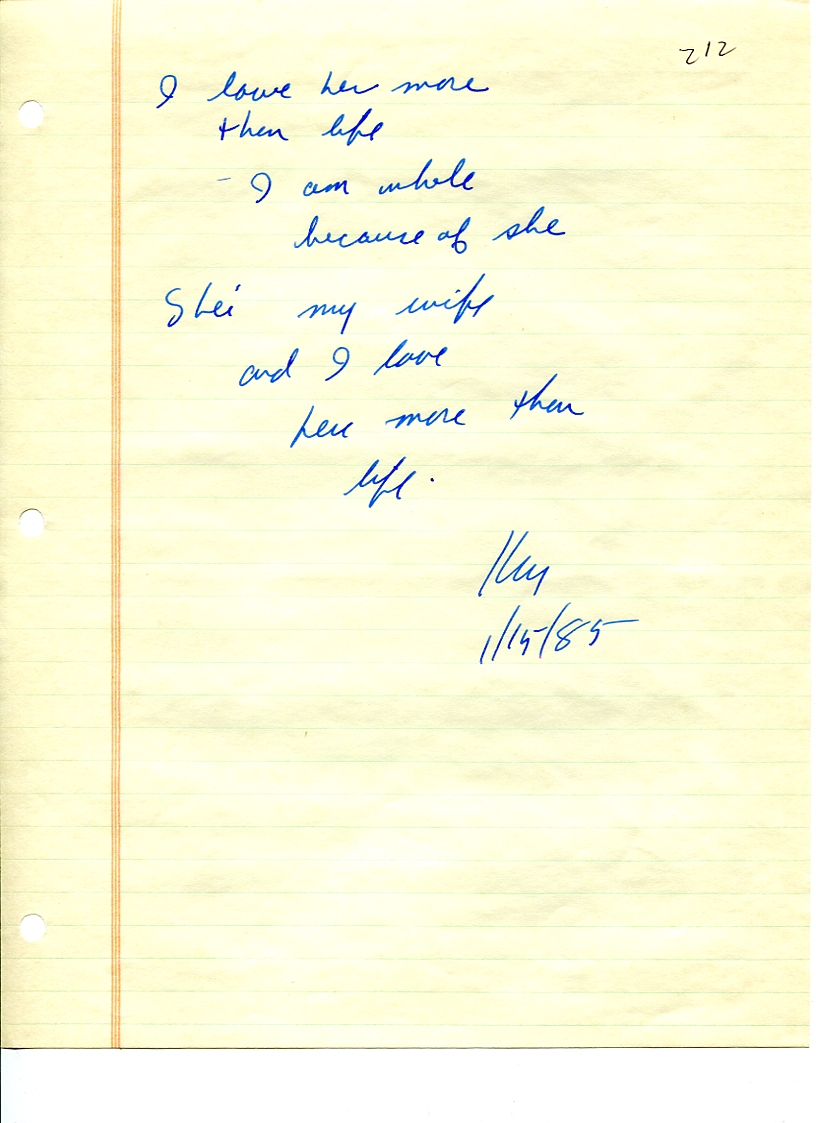 212
I love her more
than life
- I am whole
because of she
She's my wife
and I love
her more than
life.
1/15/85